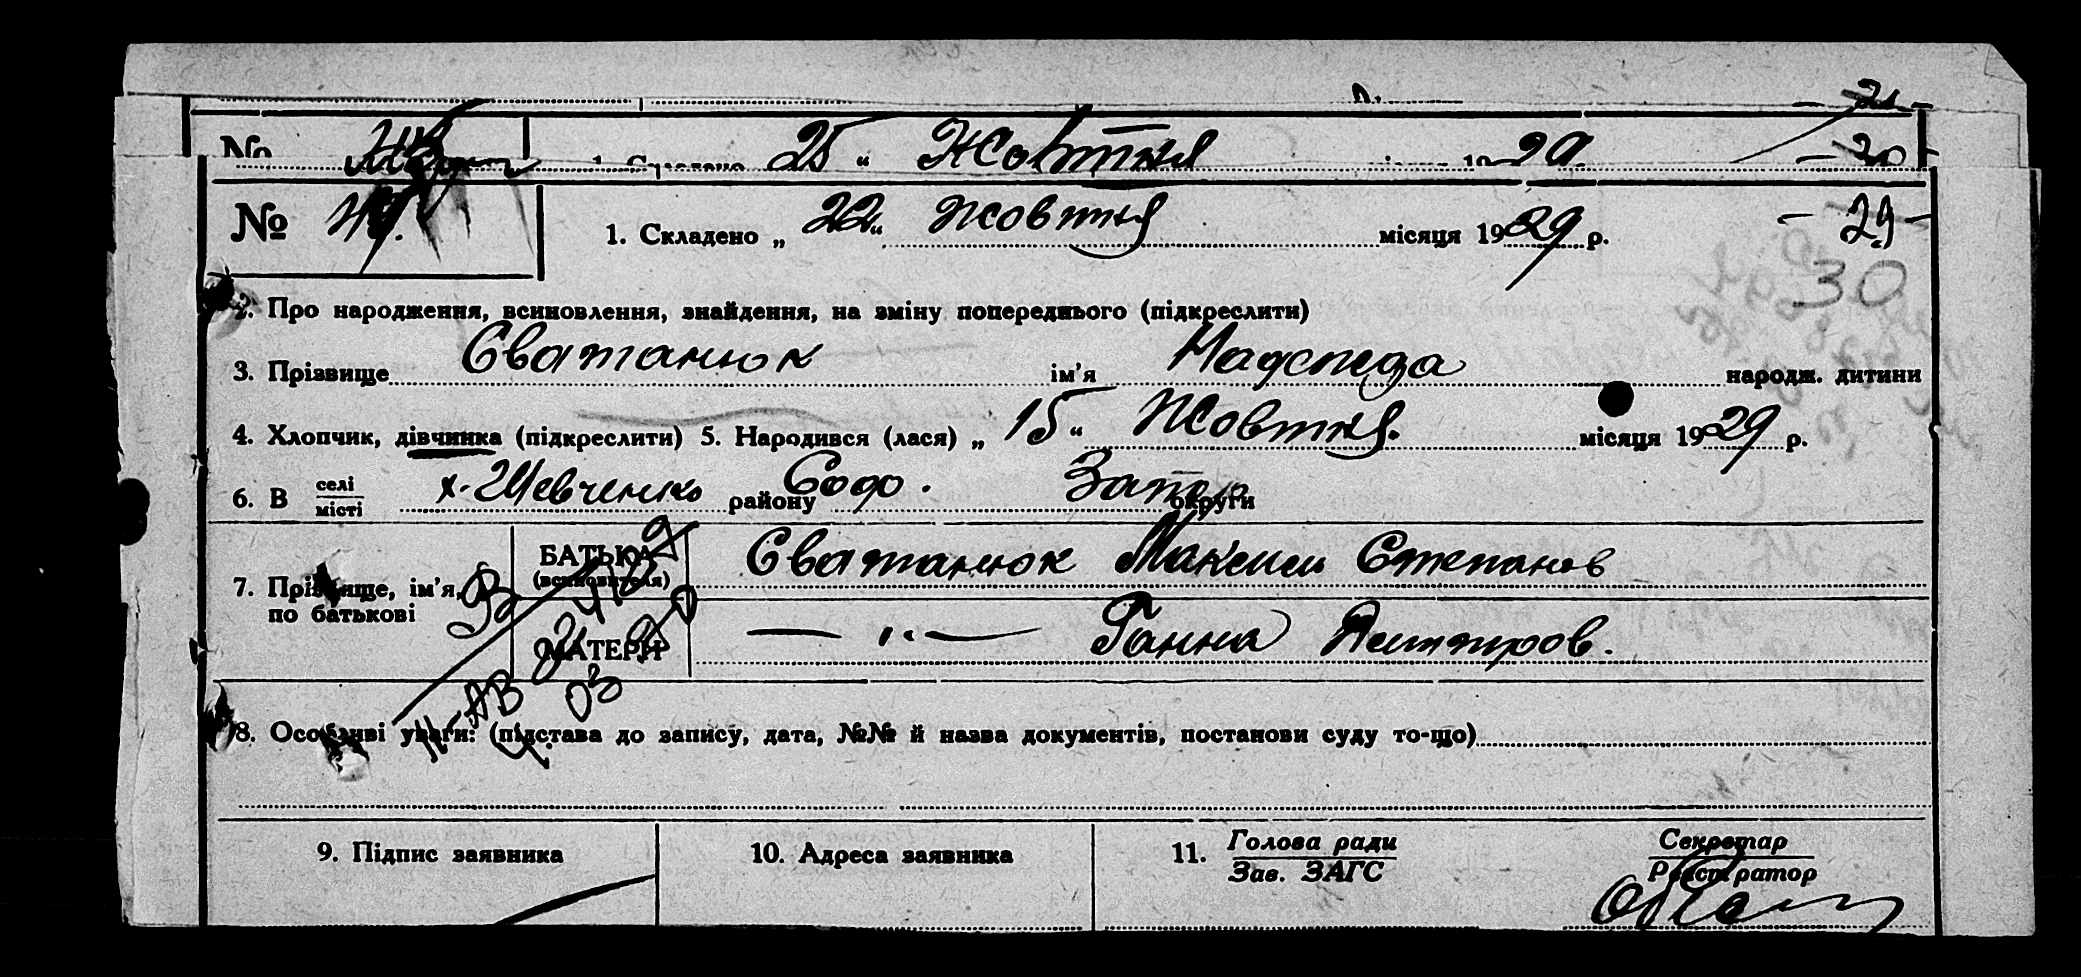 25 „ Жовтня 29
№ 1. Складено „ 22 “ жовтня місяця 1929 р. – 29 –
30
2. Про народження, всиновлення, знайдення, на зміну попереднього (підкреслити)
3. Прізвище Сватанюк ім'я Надежда народж. дитини
4. Хлопчик, дівчинка (підкреслити) 5. Народився (лася) „ 15 “ Жовтня. місяця 1929 р.
6. В селі/місті х. Шевченко району Соф. Запор округи
7. Прізвище, ім'я, по батькові
БАТЬКА (всиновителя) Сватанюк Максим Степанов
МАТЕРИ — „ — Ганна Дмитров.
8. Особливі уваги: (підстава до запису, дата, №№ й назва документів, постанови суду то-що)
9. Підпис заявника 10. Адреса заявника 11. Голова ради Секретар
Зав. ЗАГС Реєстратор